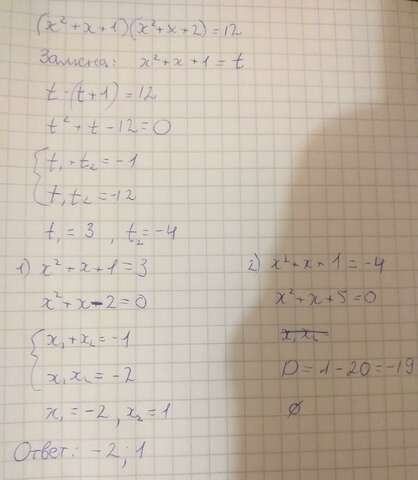 (x² + x + 1)(x² + x + 2) = 12
Замена: x² + x + 1 = t
t · (t + 1) = 12
t² + t - 12 = 0
{ t₁ + t₂ = -1
t₁ t₂ = -12
t₁ = 3 , t₂ = -4
1) x² + x + 1 = 3
x² + x - 2 = 0
{ x₁ + x₂ = -1
x₁ x₂ = -2
x₁ = -2 , x₂ = 1
2) x² + x + 1 = -4
x² + x + 5 = 0
x₁ x₂
D = 1 - 20 = -19
∅
Ответ: -2; 1